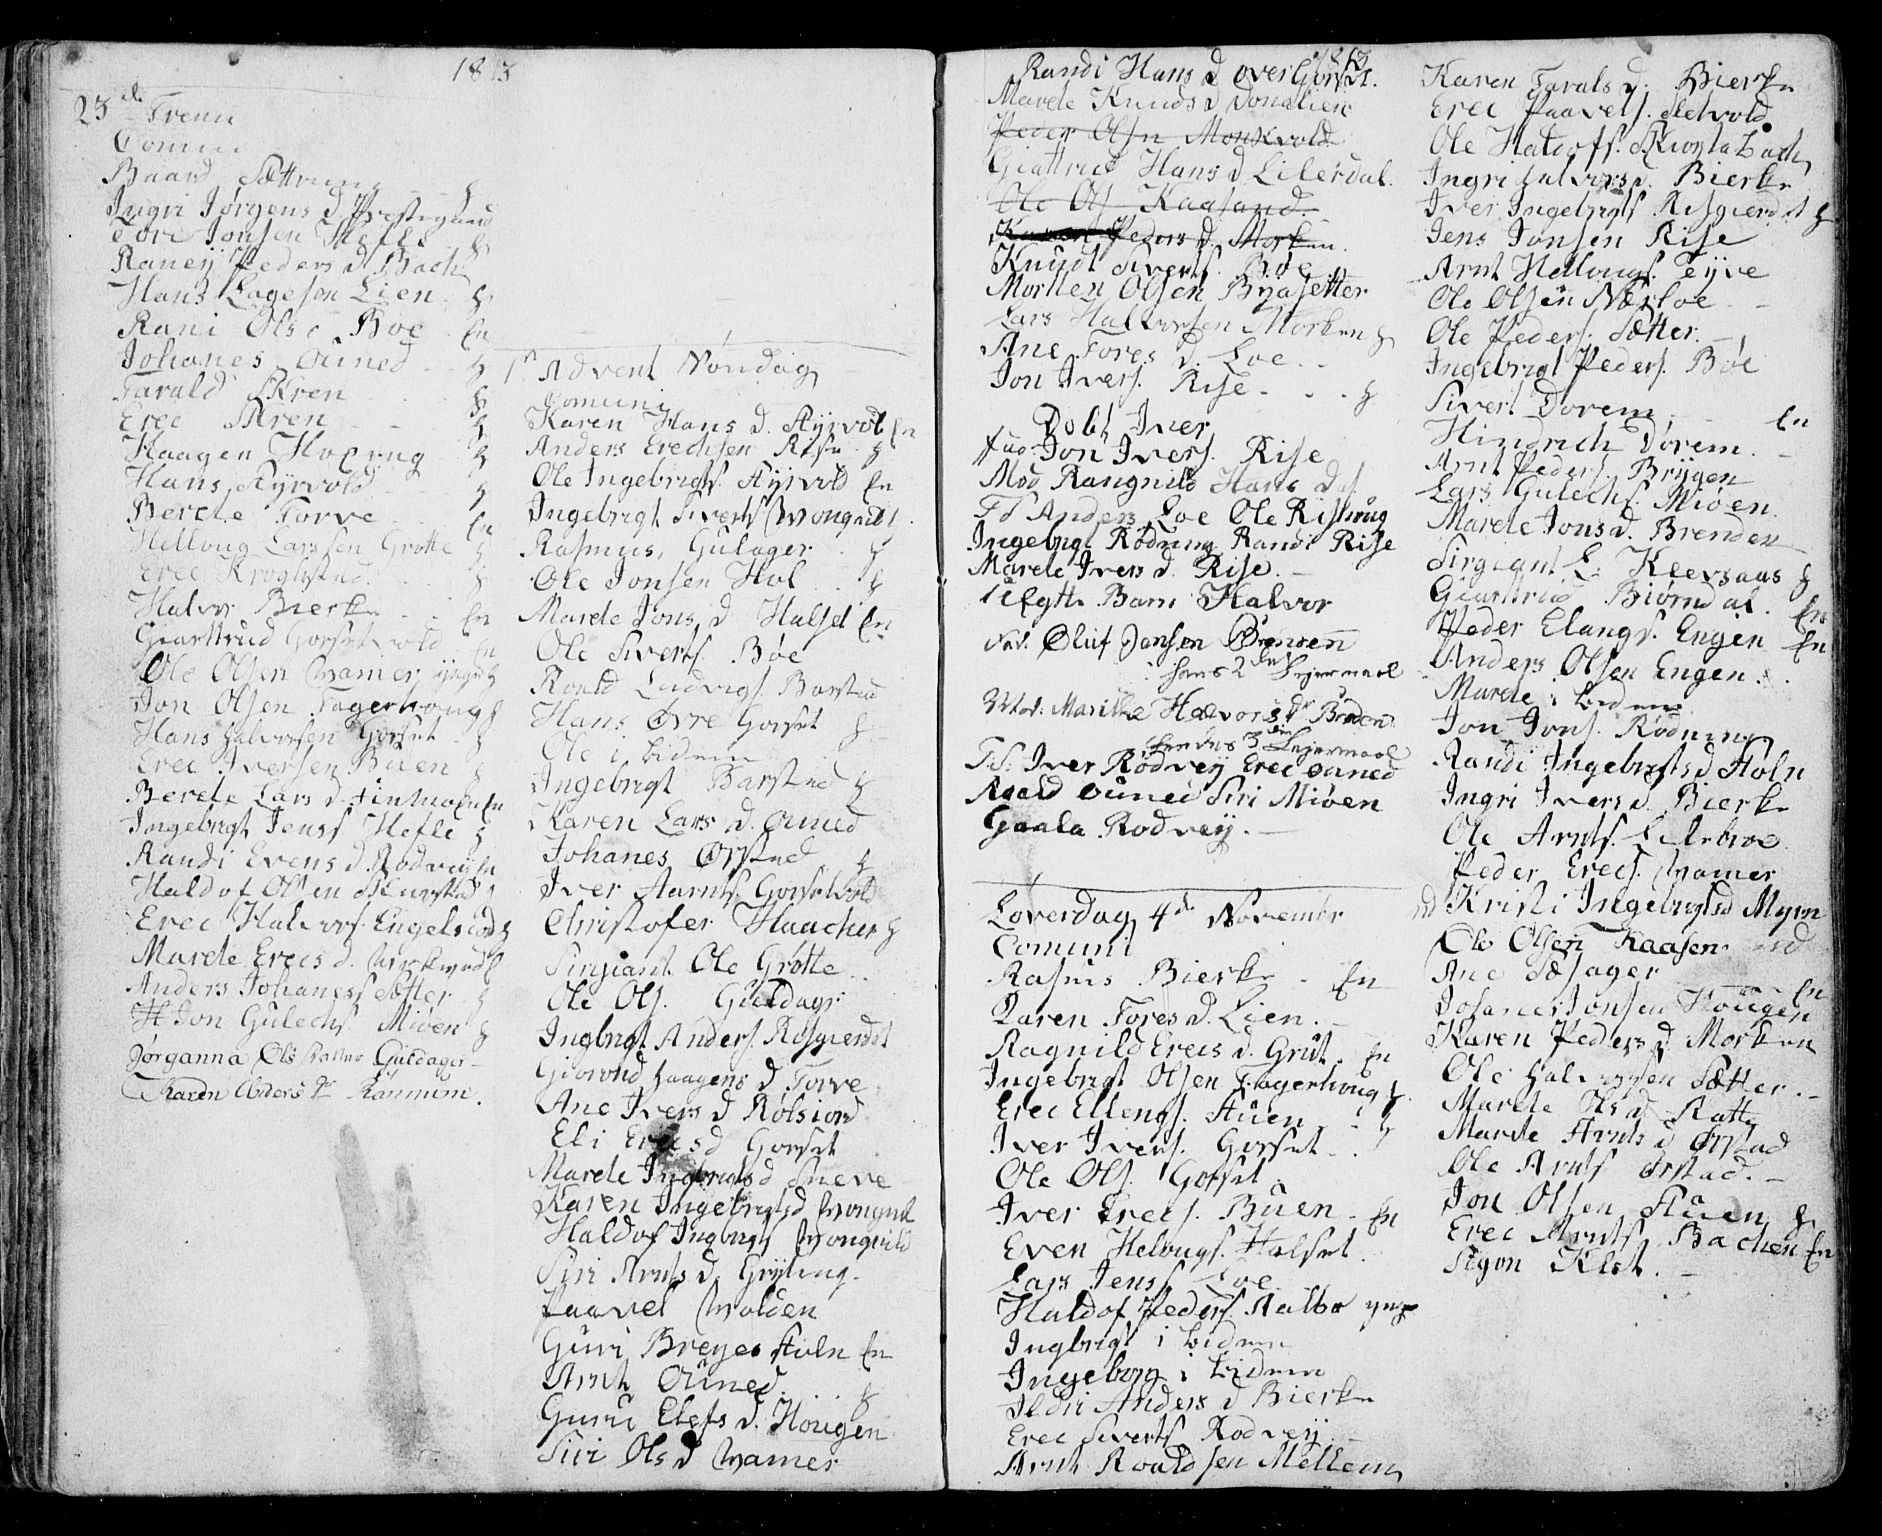 1813
23de Trenit
Comuni
Baard Sættrum
Ingri Jørgens d Prestegaard
Tore Jonsen Hefle
Raney Peders d Bach
Hans Lagesen Lien
Rani Ols d Boe En
Johanes Ouned
Tarald Skren
Erec Skren
Haagen Hoexng
Hans Kyrvold
Berete Torve En
Hellong Larssen Grotte
Erec Krogstad
Halvor Bierke En
Giærttrud Gorsetvold En
Ole Olsen Wamer ynger
Jon Olsen Fagerhoug
Hans Halvorsen Gorset
Erec Iversen Buen
Berete Lars d En
Ingebrigt Jenss Hefle
Randi Evens d Rodveij En
Haldof Olsen Skiorstad
Erec Halvors. Engelsiord
Marete Erecs d.
Anders Johaness Sætter
H Jon Gulechs. Miøen
Jørganna Ols Datter Guldager
Karen Anders dr Rønnum.
1st Advent Søndag
Comuni
Karen Hans d. Kyrvold En
Anders Erechsen Rise
Ole Ingebrigts. Kyrvold En
Ingebrigt Siverts Wongnild
Rasmus Gulager
Ole Jonsen Hol
Marete Jons d Halset En
Ole Siverts. Bøe
Roald Ludvigs. Barstad
Hans Øvre Gorset
Ole i bidem
Ingebrigt Barstad
Karen Lars d. Ouned
Johanes Ørstad
Iver Aarnts. Gorsetvold
Christofer Haacher
Sirgiant Ole Grøtte
Ole Ols. Guldagr
Ingbrigt Anders. Risgierdet
Giorond Haagens d Torve
Ane Ivers d Rølsiord
Eli Erecs d Gorset
Marete Ingbrigts d Sneve
Karen Ingebrigts d Wongnil
Haldof Ingbrigts Wongnild
Siri Arnts d. Gryting
Paavel Wolden
Guri Breyes En
Arnt Ouned
Guru Elefs d. Hougen
Siri Ols d Wamer
1813
Randi Hans d over Gorset.
Marete Knuds d Donalien
Peder Olsn Monkvold
Giærttrud Hans d Lilerdal
Ole Ols Kaasand
Karen Peders d. Morken
Knudt Siverts. Bøe
Morten Olsen Byasetter
Lars Hallvorsen Morken
Ane Tores d. Loe
Jon Ivers. Rise
Dobt Iver
Fad: Jon Ivers. Rise
Mod Rangnild Hans d
Fd Anders Loe Ole Risthoug
Ingebrigt Rødning Randi Rise
Marete Ivers d. Rise.
Uægtte Barn Halvor
Fad: Oluf Jensen Brensen
hans 2den Leiermaal
Mod: Marithe Halvors dr Broen
hendes 3die Leiermaal
Fd: Iver Rødveij Erec Ouned
Roald Ouned Siri Miøen
Gaala Rodveij.
Loverdag 4de November
Comuni
Rasmus Bierke En
Karen Tores d. Lien
Ragnild Erecs d. Grut En
Ingebrigt Olsen Fagerhoug
Erec Ellengs. Stuen
Iver Ivers. Gorset
Ole Ols. Gorset
Iver Erecs. Buen En
Even Helougs. Halset
Lars Jenss Loe
Haldof Peders. Aalbo yngr
Ingbrigt i bidem
Ingeborg i bidem
Ildri Anders d Bierke
Erec Siverts Rodveij
Arnt Roaldsen Mellem
Karen Taralsd. Bierke
Erec Paavels. Setvold
Ole Haldofs. Skiorstabach
Ingri Halvorsd. Bierke
Iver Ingebrigts Risgierdet
Jens Jonsen Rise
Arnt Hellongs. Tejve
Ole Olsen Nærloe
Ole Peders. Sætter
Ingebrigt Peders. Bøe
Sivert Dorem En
Hindrich Dorem
Arnt Peders. Bryggen
Lars Gulechs. Miøen
Marete Jons d. Brenden
Sirgiant L. Kleevsaas
Giærttrud Biørndal. En
Peder Elangs. Engen En
Anders Olsen Engen
Marete i bidem
Jon Jons. Rødning
Randi Ingebrigts d Holn
Ingri Ivers d. Bierke
Ole Arnts. Lilebroe
Peder Erecs. Wamer
Kristi Ingebrigtsd Myrn
Ole Olsen Kaasen
Ane Sæsager
Johanes Jonsen Hougen En
Karen Peders d Morken
Ole Halvorsen Sætter
Marete Ols d Ratte
Marete Arnts d Ørstad
Ole Arnts Ørstad
Jon Olsen Stuen
Erec Arnts. Bachen En
Sigon Klet